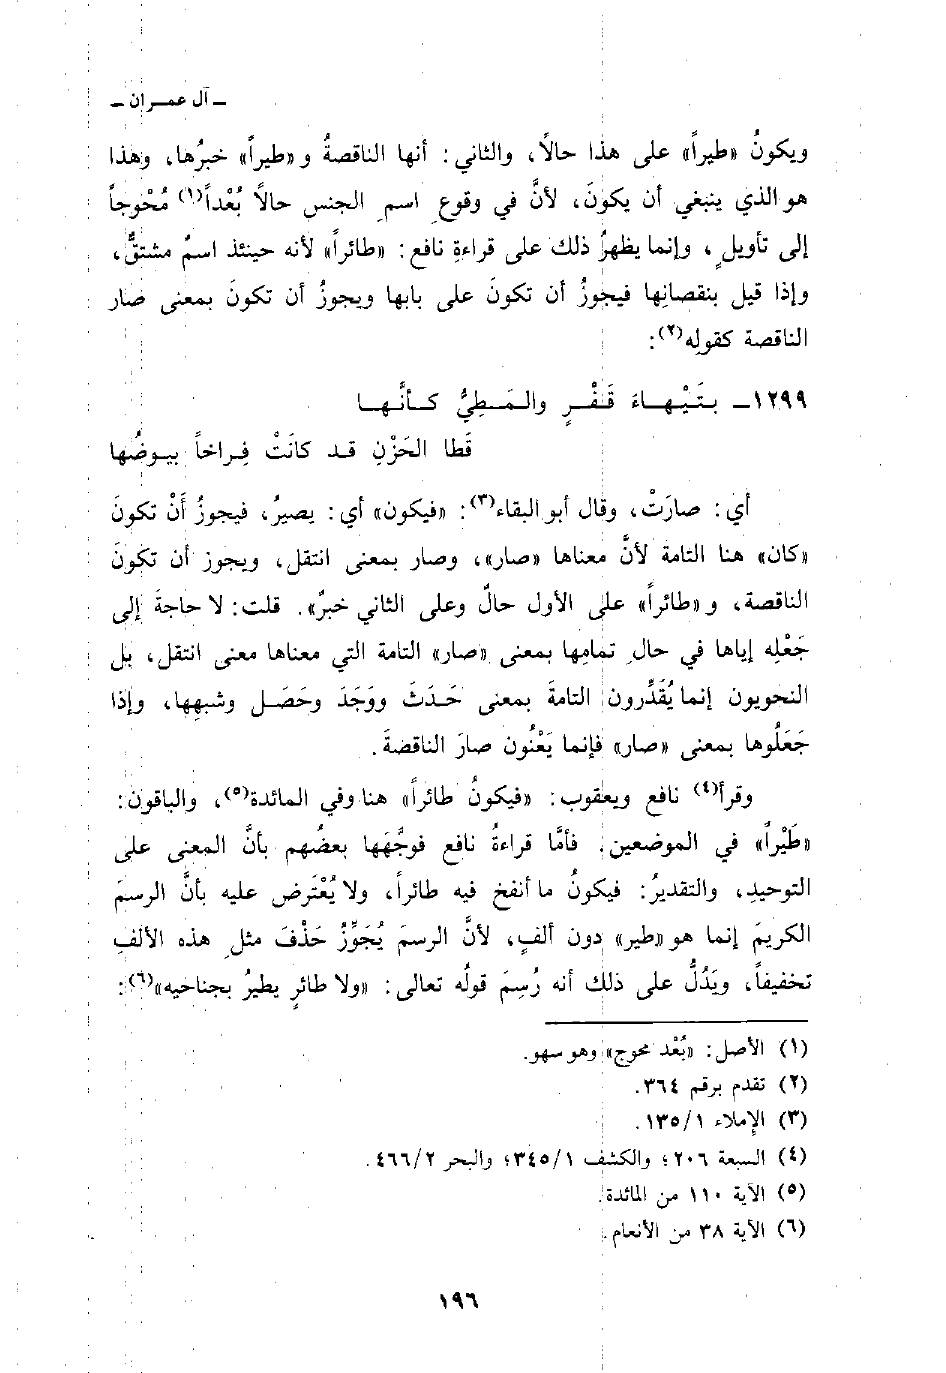 ـ آل عمـران ـ
ويكونُ «طيراً» على هذا حالاً، والثاني: أنها الناقصةُ و«طيراً» خبرُها، وهذا
هو الذي ينبغي أن يكونَ، لأنَّ في وقوعِ اسمِ الجنس حالاً بُعْداً(١) مُحْوِجاً
إلى تأويلٍ، وإنما يظهرُ ذلك على قراءةِ نافع: «طائراً» لأنه حينئذ اسمٌ مشتقٌّ،
وإذا قيل بنقصانِها فيجوزُ أن تكونَ على بابها ويجوزُ أن تكونَ بمعنى صار
الناقصة كقولِه(٢):
١٢٩٩ـ بـتَيْـهـاءَ قَـفْـرٍ والـمَـطِيُّ كـأنَّـهـا
قَطا الحَزْنِ قـد كانَتْ فِـراخـاً بيـوضُهـا
أي: صارَتْ، وقال أبو البقاء(٣): «فيكون» أي: يصيرُ، فيجوزُ أَنْ تكونَ
«كان» هنا التامة لأنَّ معناها «صار»، وصار بمعنى انتقل، ويجوز أن تكونَ
الناقصة، و«طائراً» على الأول حالٌ وعلى الثاني خبرٌ». قلت: لا حاجةَ إلى
جَعْلِه إياها في حالِ تمامِها بمعنى «صار» التامة التي معناها معنى انتقل، بل
النحويون إنما يُقَدِّرون التامةَ بمعنى حَـدَثَ ووَجَدَ وحَصَـل وشبهِهـا، وإذا
جَعَلُوها بمعنى «صار» فإنما يَعْنُون صارَ الناقصةَ.
وقرأ(٤) نافع ويعقوب: «فيكونُ طائراً» هنا وفي المائدة(٥)، والباقون:
«طَيْراً» في الموضعين. فأمَّا قراءةُ نافع فوجَّهَها بعضُهم بأنَّ المعنى على
التوحيدِ، والتقديرُ: فيكونُ ما أنفخ فيه طائراً، ولا يُعْتَرض عليه بأنَّ الرسمَ
الكريمَ إنما هو «طير» دون ألفٍ، لأنَّ الرسمَ يُجَوِّزُ حَذْفَ مثلِ هذه الألفِ
تخفيفاً، ويَدُلُّ على ذلك أنه رُسِمَ قولُه تعالى: «ولا طائرٍ يطيرُ بجناحيه»(٦):
(١) الأصل: «بُعْد محوج» وهو سهو.
(٢) تقدم برقم ٣٦٤.
(٣) الإملاء ١٣٥/١.
(٤) السبعة ٢٠٦؛ والكشف ٣٤٥/١؛ والبحر ٤٦٦/٢.
(٥) الآية ١١٠ من المائدة.
(٦) الآية ٣٨ من الأنعام.
١٩٦